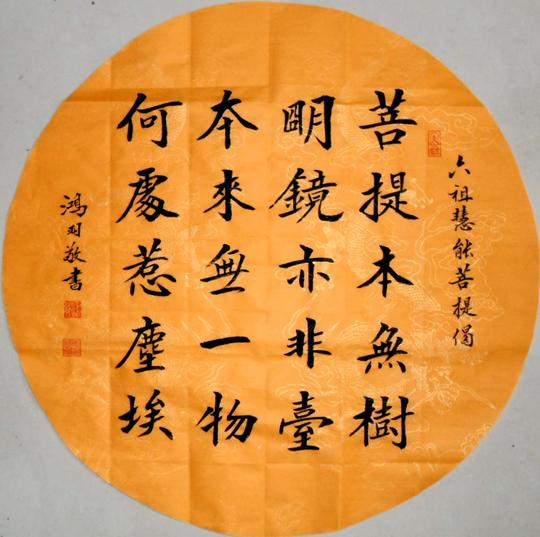 六祖慧能菩提偈
菩提本無樹
明鏡亦非臺
本來無一物
何處惹塵埃
鴻羽敬書